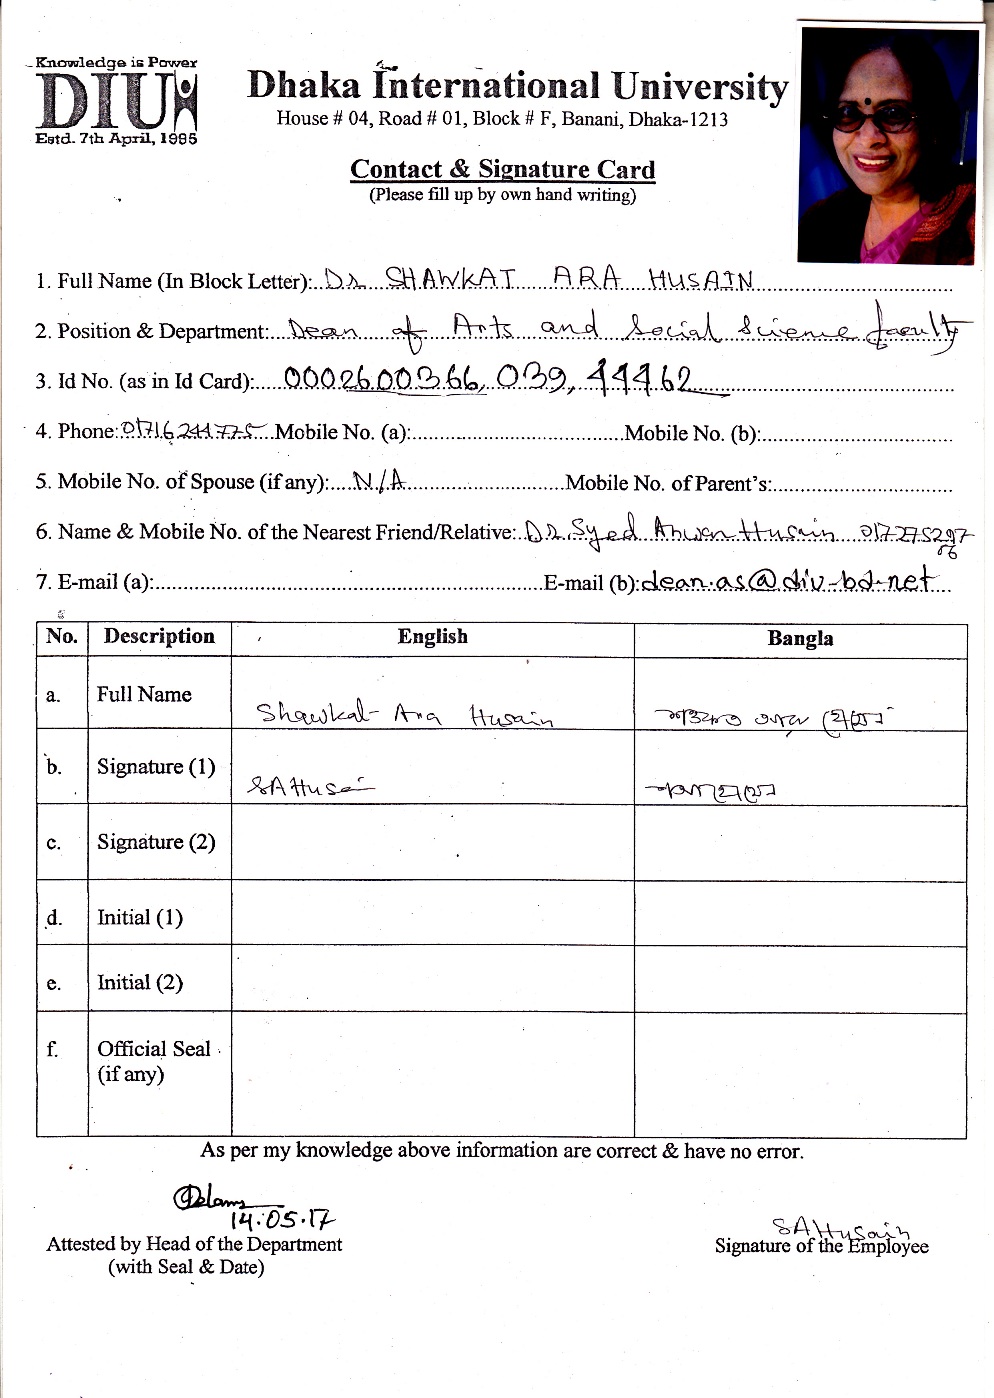 Knowledge is Power
DIU
Estd. 7th April, 1995
Dhaka International University
House # 04, Road # 01, Block # F, Banani, Dhaka-1213
Contact & Signature Card
(Please fill up by own hand writing)
1. Full Name (In Block Letter): Dr. SHAWKAT ARA HUSAIN
2. Position & Department: Dean of Arts and Social Science faculty
3. Id No. (as in Id Card): 0002600366, 039, 44462
4. Phone: 01716244775 Mobile No. (a): Mobile No. (b):
5. Mobile No. of Spouse (if any): N/A Mobile No. of Parent's:
6. Name & Mobile No. of the Nearest Friend/Relative: Dr. Syed Husain
7. E-mail (a): E-mail (b): dean.as@diu-bd.net
No. Description English Bangla
a. Full Name Shawkat Ara Husain
b. Signature (1) SAHusain
c. Signature (2)
d. Initial (1)
e. Initial (2)
f. Official Seal
(if any)
As per my knowledge above information are correct & have no error.
14.05.17
SAHusain
Attested by Head of the Department Signature of the Employee
(with Seal & Date)